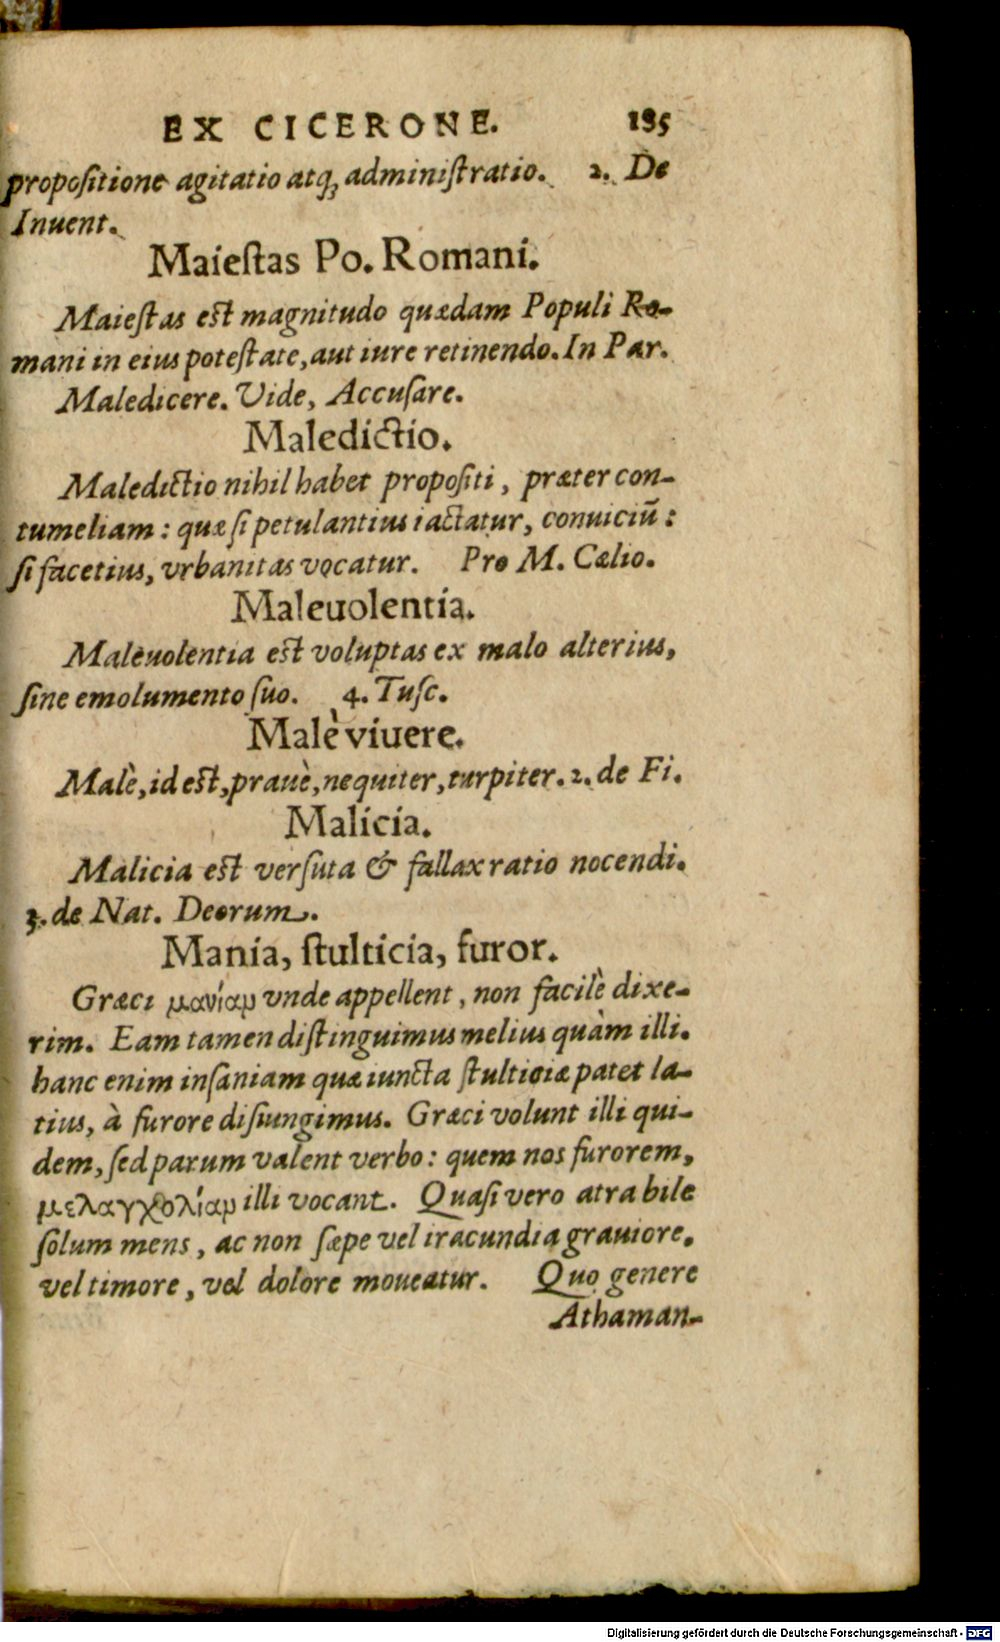 EX CICERONE. 195
propoſitione agitatio atq́; adminiſtratio. 2. De
Inuent.
Maieſtas Po. Romani.
Maieſtas eſt magnitudo quædam Populi Ro-
mani in eius poteſtate, aut iure retinendo. In Par.
Maledicere. Vide, Accuſare.
Maledictio.
Maledictio nihil habet propoſiti, præter con-
tumeliam: quæ ſi petulantius iactatur, conuiciū:
ſi facetius, vrbanitas vocatur. Pro M. Cælio.
Maleuolentia.
Maleuolentia eſt voluptas ex malo alterius,
ſine emolumento ſuo. 4. Tuſc.
Malè viuere.
Malè, id eſt, prauè, nequiter, turpiter. 2. de Fi.
Malicia.
Malicia eſt verſuta & fallax ratio nocendi.
3. de Nat. Deorum.
Mania, ſtulticia, furor.
Græci μανίαμ vnde appellent, non facilè dixe-
rim. Eam tamen diſtinguimus melius quàm illi.
hanc enim inſaniam quæ iuncta ſtulticiæ patet la-
tius, à furore diſiungimus. Græci volunt illi qui-
dem, ſed parum valent verbo: quem nos furorem,
μελαγχολίαμ illi vocant. Quaſi vero atra bile
ſolum mens, ac non ſæpe vel iracundia grauiore.
vel timore, vel dolore moueatur. Quo genere
Athaman-
Digitalisierung gefördert durch die Deutsche Forschungsgemeinschaft - DFG